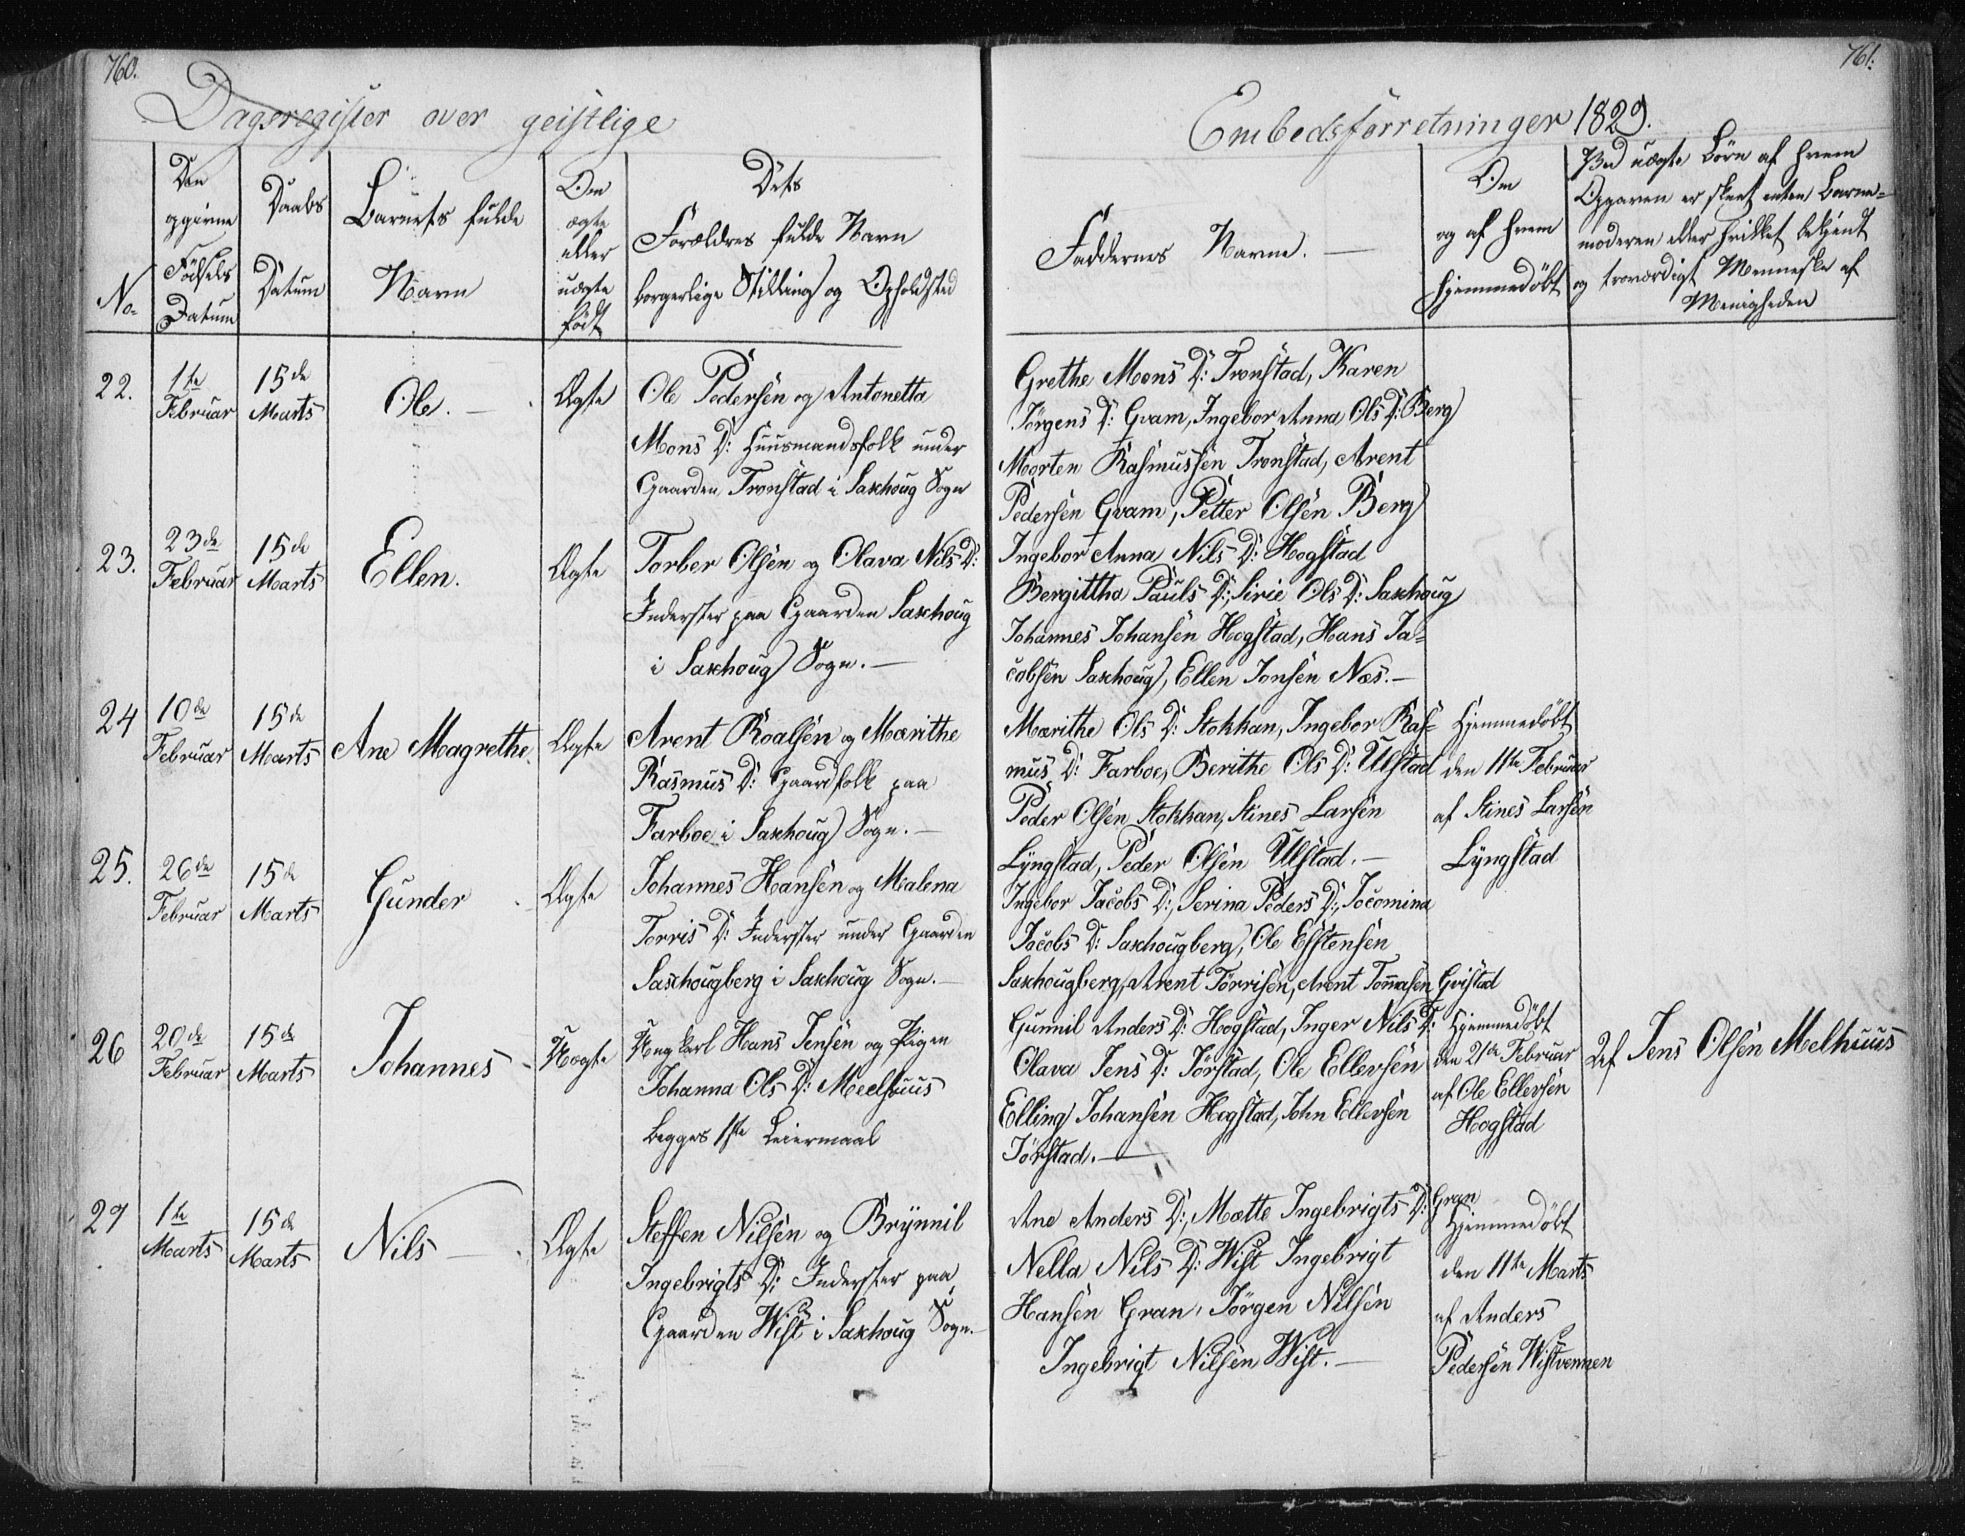 760.
Dagsregister over geistlige
No.
Den
opgivne
Födsels
Datum
Daabs
Datum
Barnets fulde
Navn
Om
ægte
eller
uægte
födt
Dets
Forældres fulde Navn
borgerlige Stilling og Opholdsted
22.
1te
Februar
15de
Marts
Ole. —
Ægte
Ole Pedersen og Antonetta
Mons D: Huusmandsfolk under
Gaarden Tronstad i Saxhoug Sogn
23.
23de
Februar
15de
Marts
Ellen.
Ægte
Torber Olsen og Olava Nils D:
Inderster paa Gaarden Saxhoug
i Saxhoug Sogn. —
24
10de
Februar
15de
Marts
Ane Magrethe.
Ægte
Arent Roalsen og Marithe
Rasmus D: Gaardfolk paa
Farboe i Saxhoug Sogn. —
25.
26de
Februar
15de
Marts
Gunder
Ægte
Johannes Hansen og Malena
Torris D: Inderster under Gaarden
Saxhougberg i Saxhoug Sogn. —
26
20de
Februar
15de
Marts
Johannes
Uægte
Ungkarl Hans Jensen og Pigen
Johanna Ols D: Meelhuus
begges 1ste Leiermaal
27
1te
Marts
15de
Marts
Nils —
Ægte
Steffen Nilsen og Brynnil
Ingebrigts D: Inderster paa
Gaarden Wist i Saxhoug Sogn. —
761.
Embedsforretninger 1829.
Faddernes Navne. —
Om
og af hvem
hjemmedöbt
Ved uægte Börn af hvem
Opgaven er skeet enten Barne-
moderen eller hvilket bekjent
og troværdigt Menneske af
Menigheden
Grethe Mons D: Tronstad, Karen
Jörgens D: Gvam, Ingebor Anna Ols D: Berg
Morten Rasmussen Tronstad, Arent
Pedersen Gvam, Petter Olsen Berg
Ingebor Anna Nils D: Hogstad
Bergittha Pauls D:, Sirie Ols D: Saxhoug
Johannes Johansen Hogstad, Hans Ja-
cobsen Saxhoug, Ellen Jonsen Næs. —
Marithe Ols D: Stokkan, Ingebor Ras-
mus D: Farboe, Berithe Ols D: Ulstad
Peder Olsen Stokkan, Stines Larsen
Lyngstad, Peder Olsen Ulstad. —
Hjemmedöbt
den 11te Februar
af Stines Larsen
Lyngstad
Ingebor Jacobs D:, Serina Peders D:, Jocomina
Jacobs D: Saxhougberg, Ole Estensen
Saxhougberg, Arent Törrisen, Arent Tommasen Gvistad
Gunnil Anders D: Hogstad, Inger Nils D:
Olava Jens D: Jörstad, Ole Ellevsen
Elling Johansen Hogstad, John Ellevsen
Jörstad. —
Hjemmedöbt
den 21de Februar
af Ole Ellevsen
Hogstad
Af Jens Olsen Melhuus
Ane Anders D:, Mætte Ingebrigts D: Gran
Nella Nils D: Wist Ingebrigt
Hansen Gran, Jörgen Nilsen
Ingebrigt Nilsen Wist. —
Hjemmedöbt
den 11te Marts
af Anders
Pedersen Wistvennen